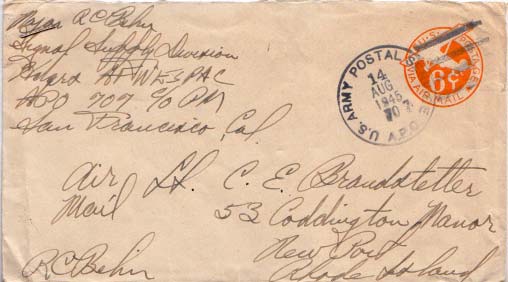 Major R C Behn
Signal Supply Division
Hdqrs AFWESPAC
APO 707 c/o PM
San Francisco, Cal.
U.S. ARMY POSTAL S
14
AUG
1945
A.P.O.
U.S. POSTAGE
6¢
VIA AIR MAIL
Air Mail
Lt. C. E. Brandstetter
53 Coddington Manor
New Port
Rhode Island
RC Behn